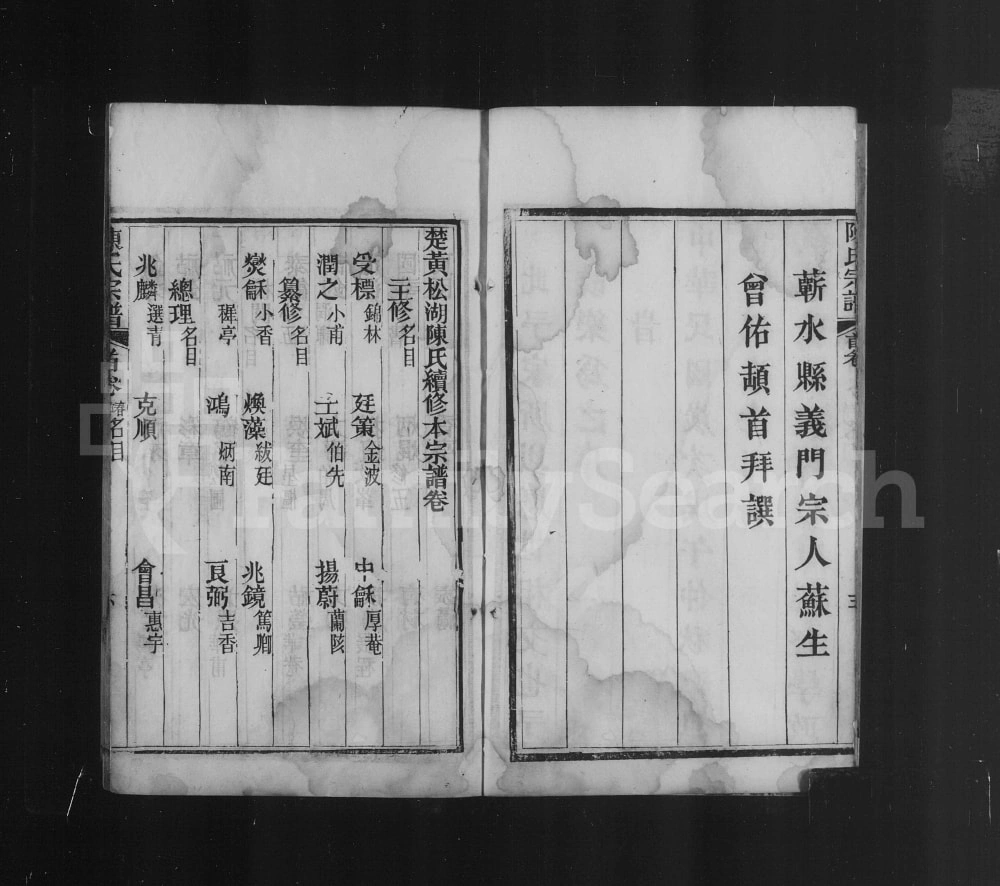 陳氏宗譜
首卷
蘄水縣義門宗人蘇生
曾佑頓首拜譔
楚黃松湖陳氏續修本宗譜卷
主修名目
受標錦林 廷策金波 中龢厚菴
潤之小甫 士斌伯先 揚蔚蘭陔
纂修名目
熒龢小香 煥藻紱廷 兆鏡篤卿
穉亭 鴻炳南 良弼吉香
總理名目
兆麟選青 克順 會昌惠宇
陳氏宗譜
首卷 名目
FamilySearch